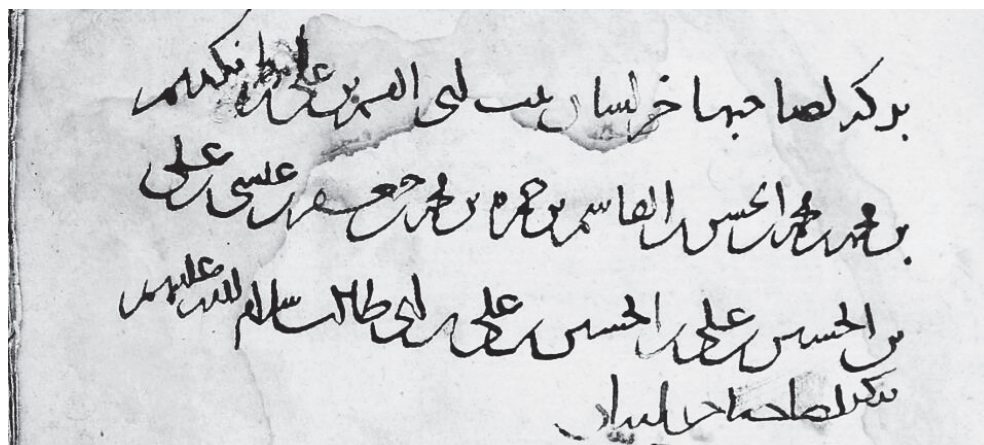 بركة لصاحبها خراسان بنت ابى القسم بن على بن
بن محمد بن محمد بن الحسن بن القاسم بن حمزه بن محمد بن جعفر بن عيسى بن على
بن الحسين بن على بن الحسين بن على بن ابى طالب سلام الله عليهم
بركة لصاحبها خراسان